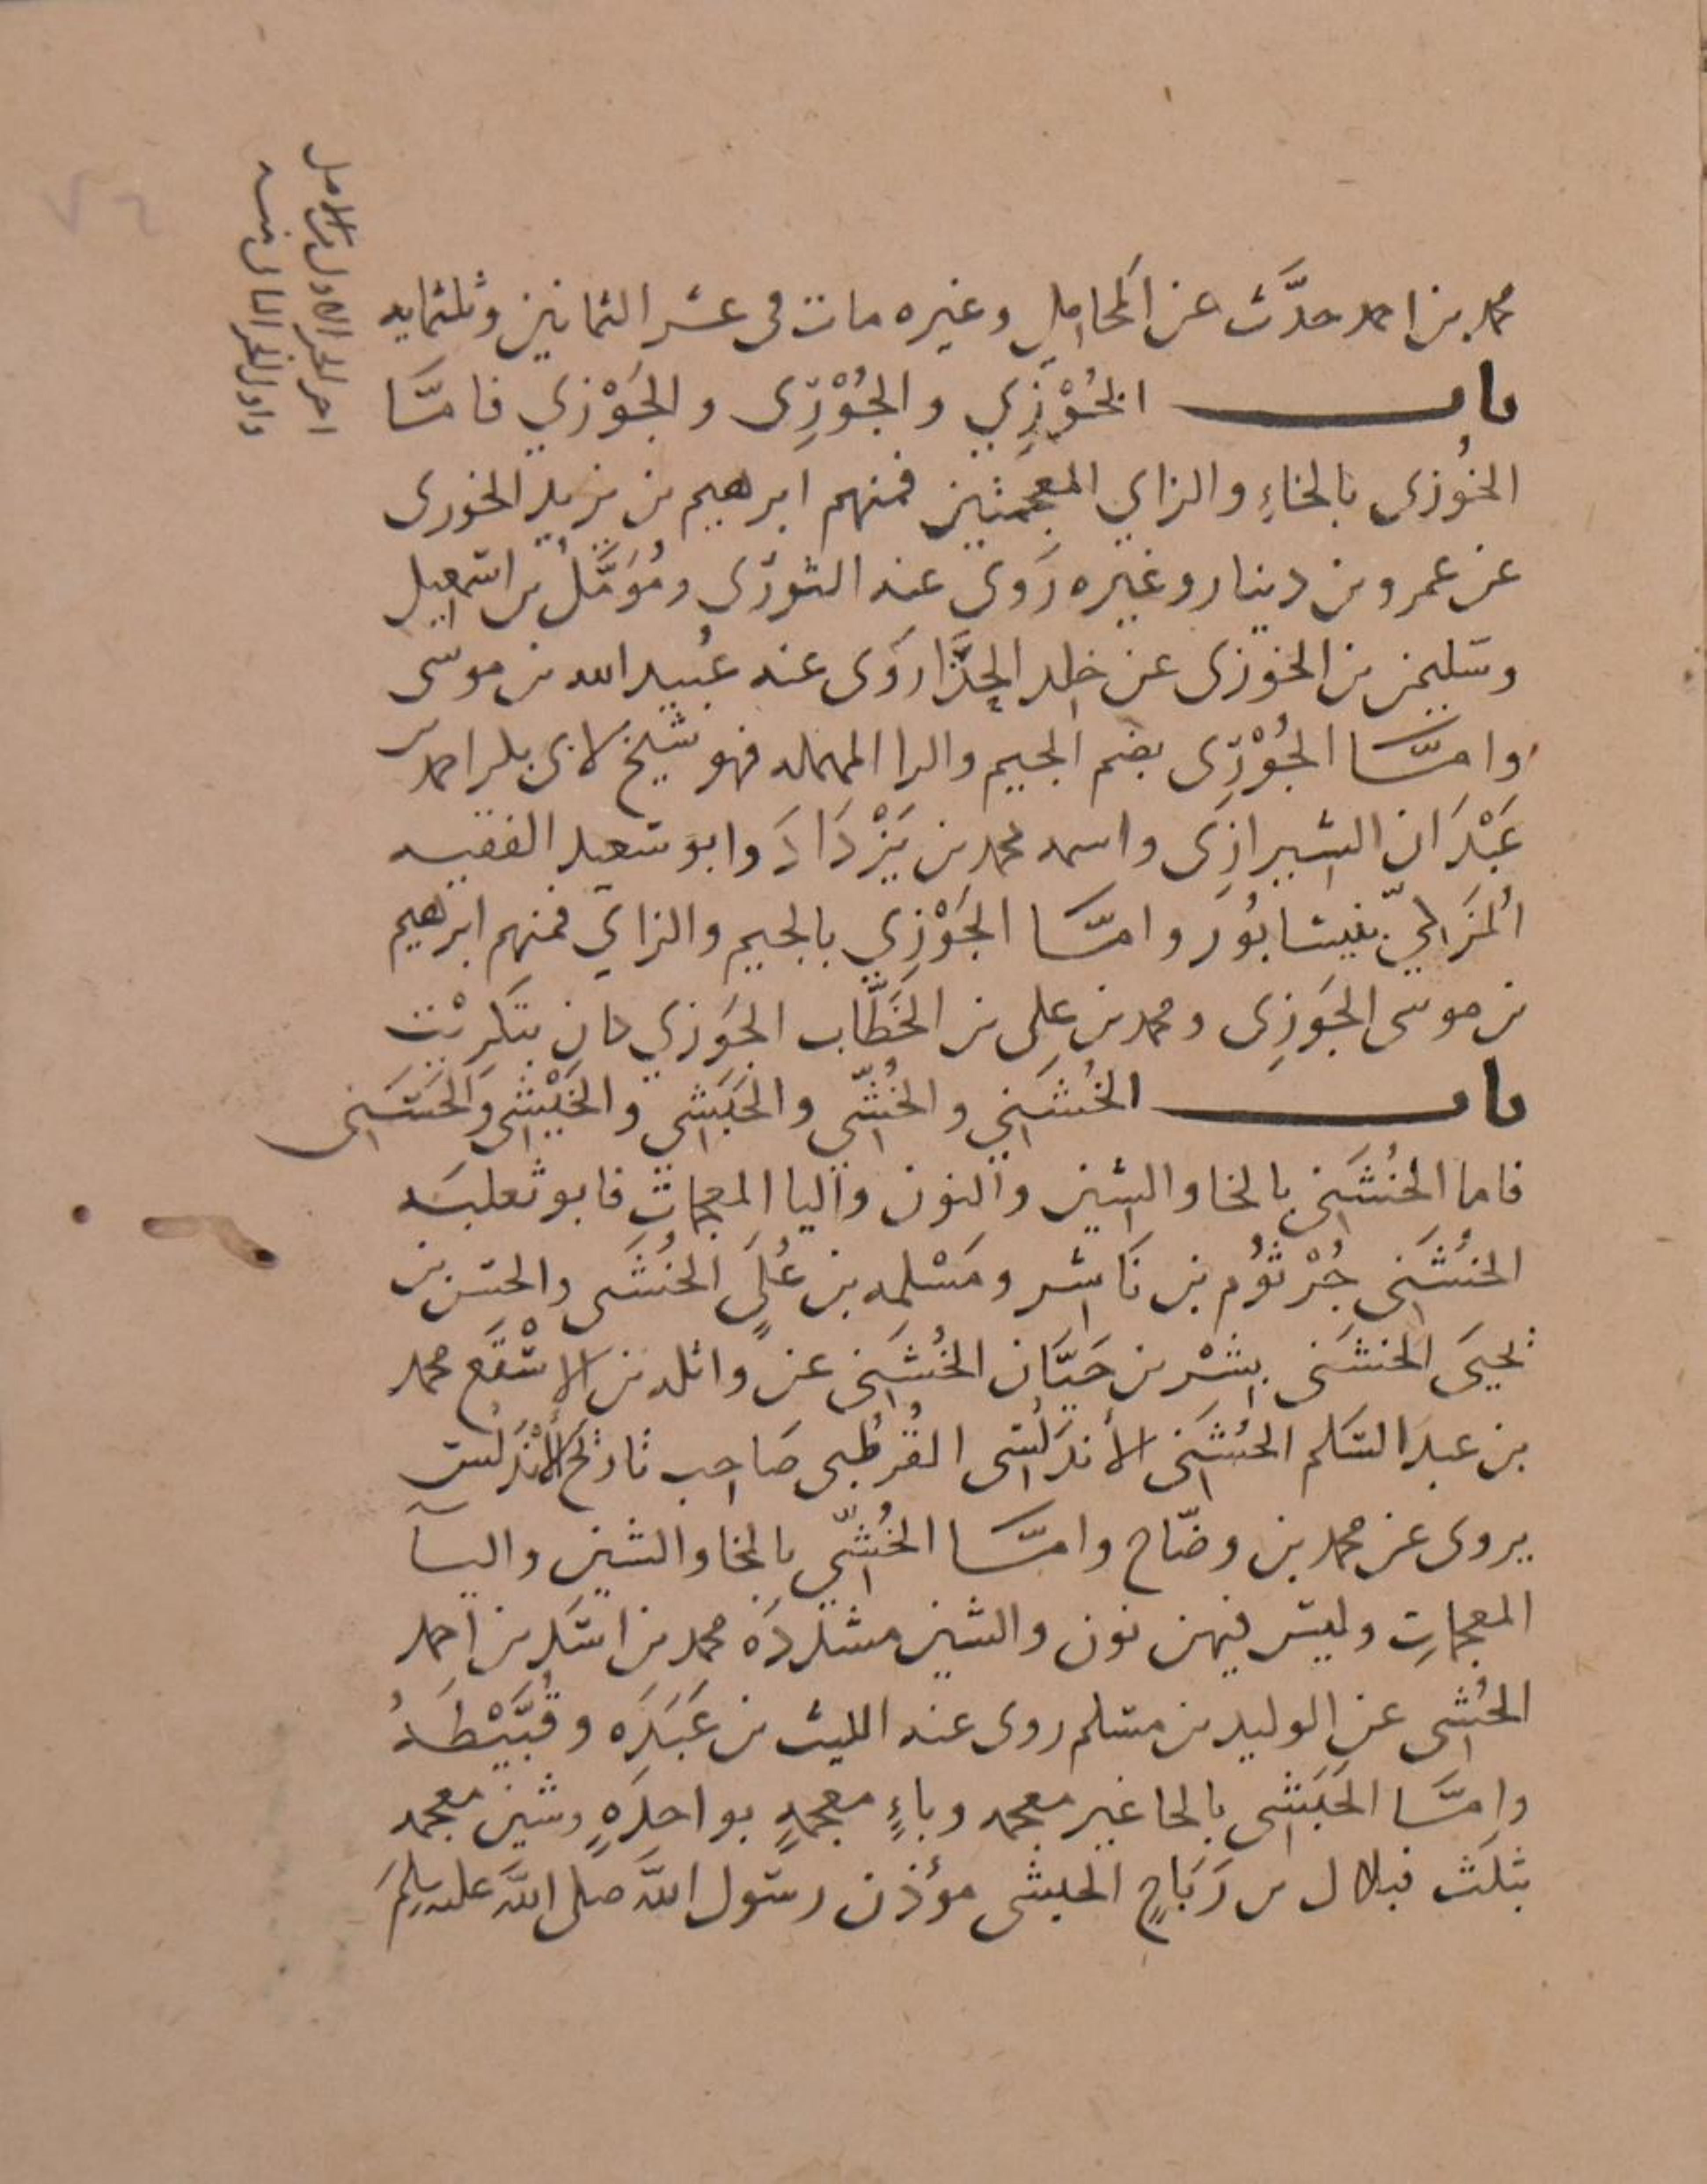 محمد بن احمد حدَّث عن المحاملي وغيره مات فى عشر الثمانين وثلثمايه
باب الخُوْزِي والجُوْرِى والجَوْزي فامَّا
الخُوزى بالخاءِ والزاي المعجمتين فمنهم ابرهيم بن يزيد الخوزى
عن عمرو بن دينار وغيره رَوى عنه الثورّى ومُؤَمَّلُ بن اسمعيل
وسليمن بن الخوزى عن خلد الحذَّا روَى عنه عُبيد الله بن موسى
وامَّا الجُوْرِّى بضم الجيم والرا المهمله فهو شيخ لابى بكر احمد بن
عَبْدَان الشيرازِى واسمه محمد بن يَزْدَادَ وابو سعيد الفقيه
بنيسابُور وامَّا الجَوْزِي بالجيم والزاي فمنهم ابرهيم
بن موسى الجَوزِى ومحمد بن علِى بن الخَطَّاب الجَوزي كان بتَكرِيْت
باب الخُشَنِي والخُشّي والحَبَشِي والخَيْشي والحَسَنِى
فاما الخُشَنِى بالخا والشين والنون واليا المعجمات فابو ثعلبَه
الخُشَنِى جُرْثُوُم بن نَاشر ومَسْلمه بن عُلَيٍ الخُشَنى والحسن بن
يحيَى الخشَنى بِشْر بن حَيَّان الخُشَنِى عن واثله بن الاسْقَع محمد
بن عبد السَلم الخُشَنِى الأندَلُسِى القُرطُبى صَاحِب تاريخ الأَنْدَلُس
يروى عن محمد بن وضّاح وامَّا الخُشِّي بالخا والشين واليآ
المعجماتِ وليس فيهن نون والشين مشدّدَه محمد بن اسَد بن احمد
الخُشِى عن الوليد بن مسلم روى عنه الليث بن عَبَدَه وقُبَّيْطَهُ
وامَّا الحَبَشِى بالحا غير معجمه وباءٍ معجمهٍ بواحدَهٍ وشين معجمه
بثلَث فبلال بن رَبَاحٍ الحبشى مؤذن رسول اللهَ صلى اللهَ عليه وسلمَ
اخر الجز الاول من الاصل
واول الجز الثانى منه
٧٦